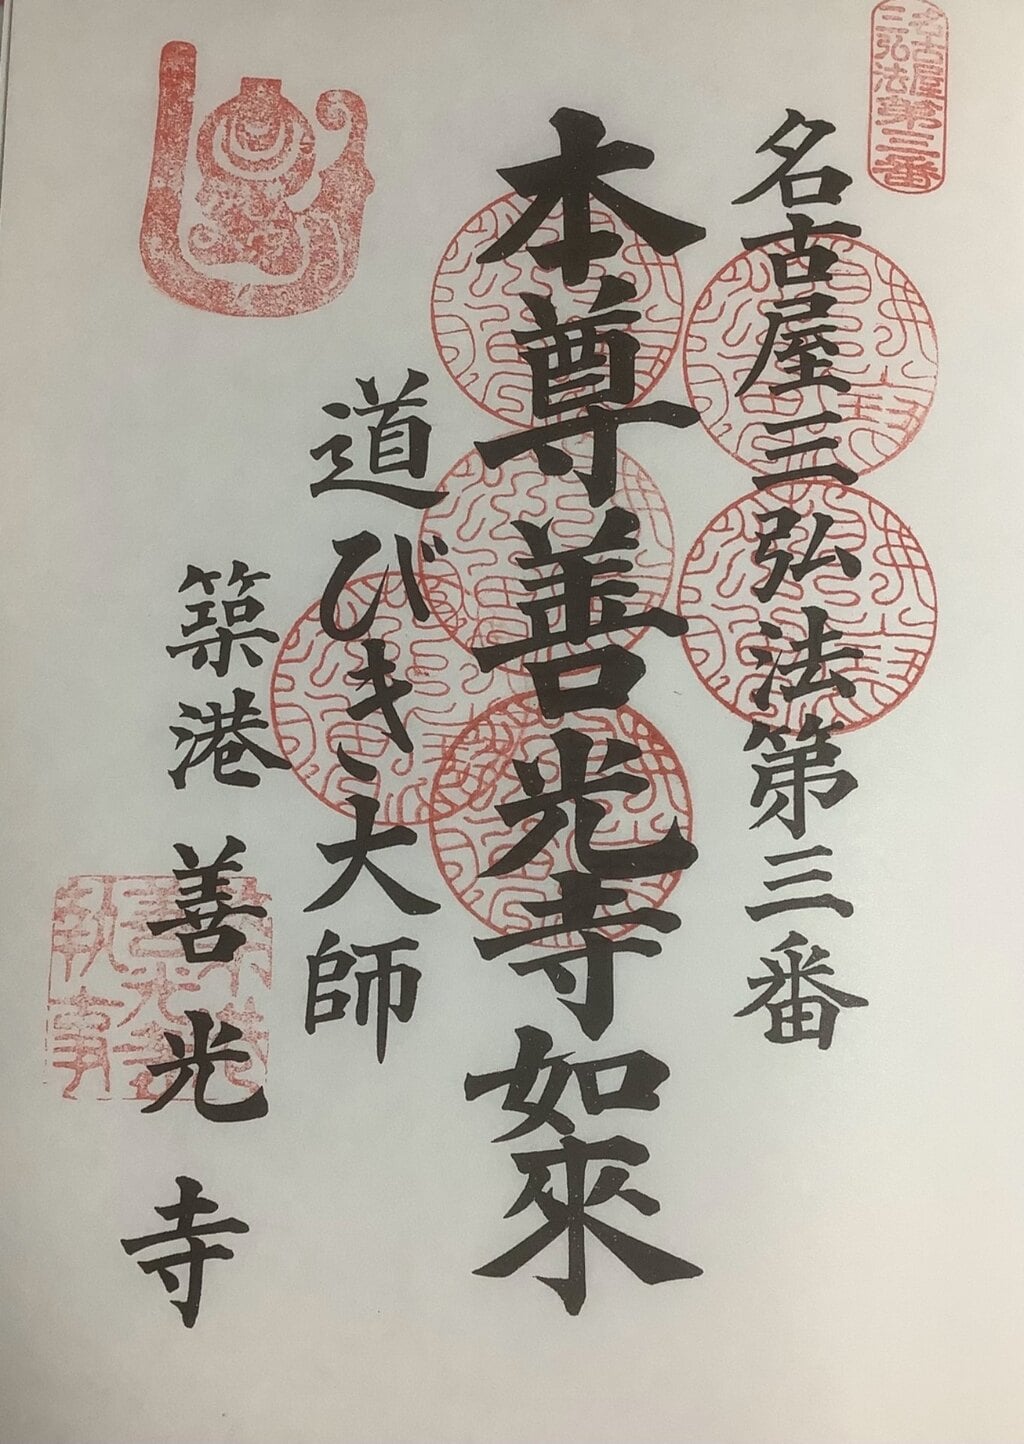 名古屋
三弘法第三番
名古屋三弘法第三番
本尊善光寺如來
道びき大師
築港 善光寺